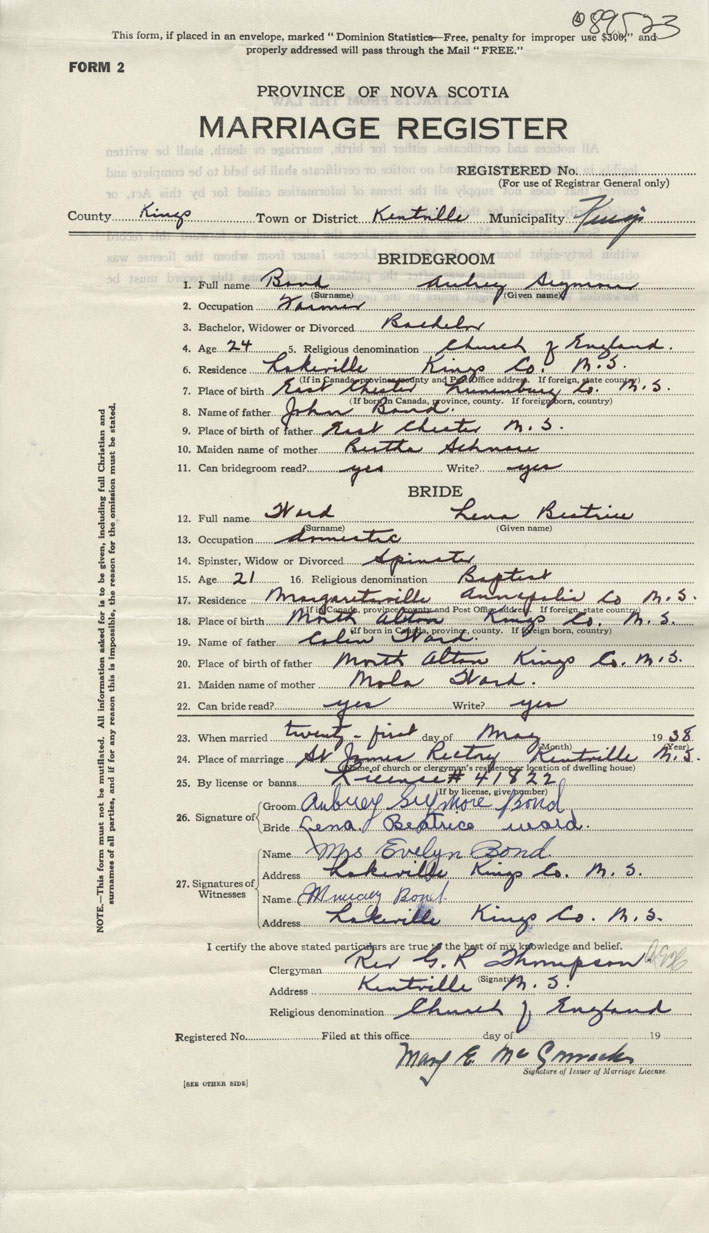 89523
This form, if placed in an envelope, marked "Dominion Statistics—Free, penalty for improper use $300," and
properly addressed will pass through the Mail "FREE."
FORM 2
PROVINCE OF NOVA SCOTIA
MARRIAGE REGISTER
REGISTERED No.
(For use of Registrar General only)
County Kings Town or District Kentville Municipality Kings
BRIDEGROOM
1. Full name Bond Aubrey Seymour
(Surname) (Given name)
2. Occupation Farmer
3. Bachelor, Widower or Divorced Bachelor
4. Age 24 5. Religious denomination Church of England.
6. Residence Lakeville Kings Co. N.S.
(If in Canada, province, county and Post Office address. If foreign, state country)
7. Place of birth East Chester Lunenburg Co. N.S.
(If born in Canada, province, county. If foreign born, country)
8. Name of father John Bond.
9. Place of birth of father East Chester N.S.
10. Maiden name of mother Bertha Schnare
11. Can bridegroom read? yes Write? yes
BRIDE
12. Full name Ward Lena Beatrice
(Surname) (Given name)
13. Occupation domestic
14. Spinster, Widow or Divorced Spinster
15. Age 21 16. Religious denomination Baptist
17. Residence Margaretsville Annapolis Co N.S.
(If in Canada, province, county and Post Office address. If foreign, state country)
18. Place of birth North Alton Kings Co. N.S.
(If born in Canada, province, county. If foreign born, country)
19. Name of father Colin Ward.
20. Place of birth of father North Alton Kings Co. N.S.
21. Maiden name of mother Mola Ward.
22. Can bride read? yes Write? yes
23. When married twenty-first day of May 1938
(Month) (Year)
24. Place of marriage St James Rectory Kentville N.S.
(Name of church or clergyman's residence or location of dwelling house)
25. By license or banns License # 41822
(If by license, give number)
26. Signature of Groom Aubrey Seymore Bond
Bride Lena Beatrice ward.
27. Signatures of Witnesses
Name Mrs Evelyn Bond
Address Lakeville Kings Co. N.S.
Name Murray Bond
Address Lakeville Kings Co. N.S.
I certify the above stated particulars are true to the best of my knowledge and belief.
Clergyman Rev G. R Thompson
(Signature)
Address Kentville N.S.
Religious denomination Church of England
Registered No. Filed at this office day of 19
Mary E.
Signature of Issuer of Marriage License.
[SEE OTHER SIDE]
NOTE.—This form must not be mutilated. All information asked for is to be given, including full Christian and
surnames of all parties, and if for any reason this is impossible, the reason for the omission must be stated.